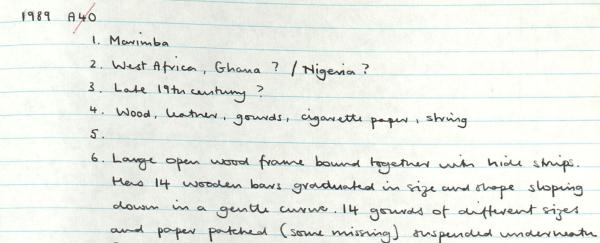 1989 A40
1. Marimba
2. West Africa, Ghana ? / Nigeria ?
3. Late 19th century ?
4. Wood, leather, gourds, cigarette paper, string
5.
6. Large open wood frame bound together with hide strips.
Has 14 wooden bars graduated in size and shape sloping
down in a gentle curve. 14 gourds of different sizes
and paper patched (some missing) suspended underneath